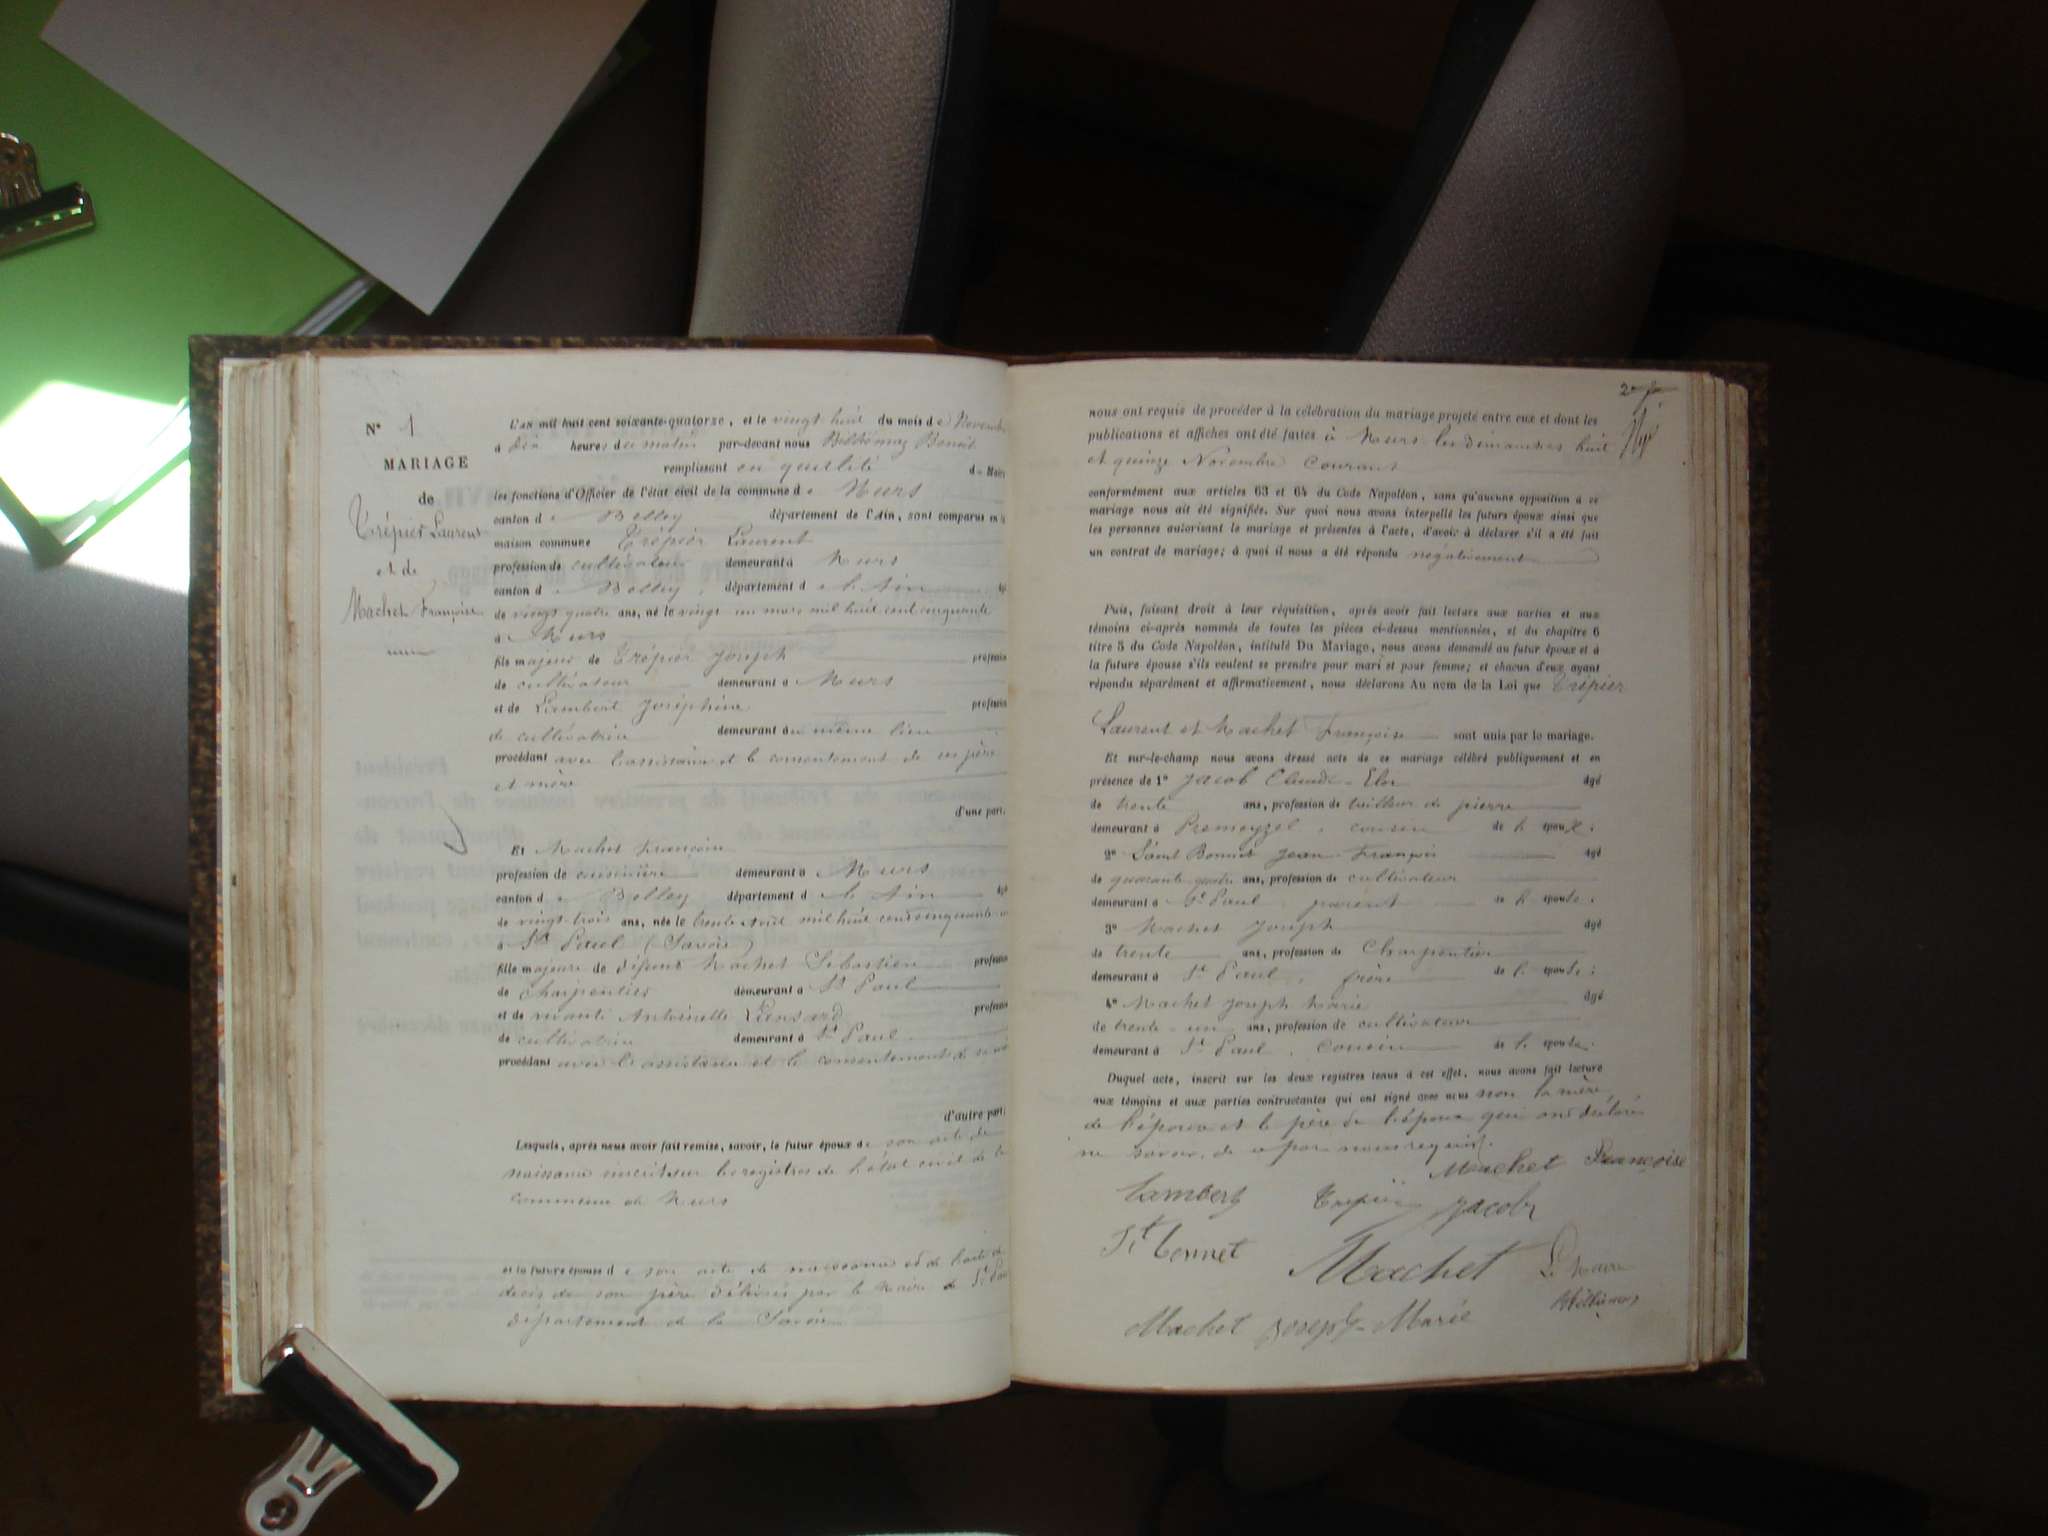 N° 1
MARIAGE
de
Trépier Laurent
et de
Machet Françoise
L'an mil huit cent soixante-quatorze, et le vingt huit du mois de Novembre
à dix heures du matin par-devant nous Billiémaz Benoit
remplissant en qualité de Maire
les fonctions d'Officier de l'état civil de la commune de Murs
canton de Belley département de l'Ain, sont comparus en la
maison commune Trépier Laurent
profession de cultivateur demeurant à Murs
canton de Belley, département de l'Ain âgé
de vingt quatre ans, né le vingt un mars mil huit cent cinquante
à Murs
fils majeur de Trépier Joseph profession
de cultivateur demeurant à Murs
et de Lambert Joséphine profession
de cultivatrice demeurant au même lieu
procédant avec l'assistance et le consentement de ses père
et mère
d'une part.
Et Machet Françoise
profession de cuisinière demeurant à Murs
canton de Belley département de l'Ain âgé
de vingt-trois ans, née le trente Août mil huit cent cinquante un
à St Paul (Savoie)
fille majeure de défunt Machet Sébastien profession
de charpentier demeurant à St Paul
et de vivante Antoinette profession
de cultivatrice demeurant à St Paul
procédant avec l'assistance et le consentement de sa mère
d'autre part.
Lesquels, après nous avoir fait remise, savoir, le futur époux de son acte de
naissance inscrit sur les registres de l'état civil de la
commune de Murs
et la future épouse de son acte de naissance et de l'acte de
décès de son père délivrés par le Maire de St Paul
département de la Savoie
2
nous ont requis de procéder à la célébration du mariage projeté entre eux et dont les
publications et affiches ont été faites à Murs les dimanches huit
et quinze Novembre courant
conformément aux articles 63 et 64 du Code Napoléon, sans qu'aucune opposition à ce
mariage nous ait été signifiée. Sur quoi nous avons interpellé les futurs époux ainsi que
les personnes autorisant le mariage et présentes à l'acte, d'avoir à déclarer s'il a été fait
un contrat de mariage; à quoi il nous a été répondu négativement
Puis, faisant droit à leur réquisition, après avoir fait lecture aux parties et aux
témoins ci-après nommés de toutes les pièces ci-dessus mentionnées, et du chapitre 6
titre 5 du Code Napoléon, intitulé Du Mariage, nous avons demandé au futur époux et à
la future épouse s'ils veulent se prendre pour mari et pour femme; et chacun d'eux ayant
répondu séparément et affirmativement, nous déclarons Au nom de la Loi que Trépier
Laurent et Machet Françoise sont unis par le mariage.
Et sur-le-champ nous avons dressé acte de ce mariage célébré publiquement et en
présence de 1° Jacob Claude-Eloi âgé
de trente ans, profession de tailleur de pierre
demeurant à Premeyzel, cousin de l'époux.
2° Saint Bonnet Jean-François âgé
de quarante quatre ans, profession de cultivateur
demeurant à St Paul, parent de l'épouse.
3° Machet Joseph âgé
de trente ans, profession de Charpentier
demeurant à St Paul, frère de l'épouse;
4° Machet Joseph Marie âgé
de trente-un ans, profession de cultivateur
demeurant à St Paul, cousin de l'épouse.
Duquel acte, inscrit sur les deux registres tenus à cet effet, nous avons fait lecture
aux témoins et aux parties contractantes qui ont signé avec nous non la mère
de l'épouse et le père de l'époux qui ont déclaré
ne savoir, de ce par nous requis.
Machet Françoise
Lambert Trépier Jacob
St bonnet Machet Le Maire
Machet Joseph-Marie Billiémaz